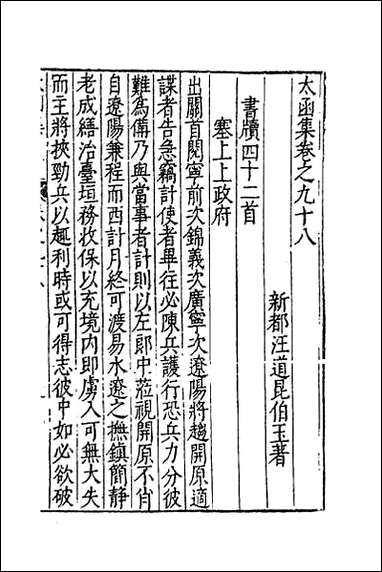 太函集卷之九十八
新都汪道昆伯玉著
書牘四十二首
塞上上政府
出關首閱寧前次錦義次廣寧次遼陽將趨開原適
諜者告急竊計使者畢往必陳兵護行恐兵力分彼
難為備乃與當事者計則以左郎中蒞視開原不肖
自遼陽兼程而西計月終可渡易水遼之撫鎮簡靜
老成繕治臺垣務收保以充境內即虜入可無大失
而主將挾勁兵以趨利時或可得志彼中如必欲破